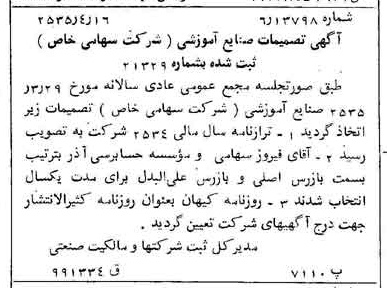 شماره ۶٫۱۳۷۹۸ ۲۵۳۵٫۴٫۱۶
آگهی تصمیمات صنایع آموزشی ( شرکت سهامی خاص )
ثبت شده بشماره ۲۱۳۲۹
طبق صورتجلسه مجمع عمومی عادی سالانه مورخ ۳٫۲۹ر
۲۵۳۵ صنایع آموزشی ( شرکت سهامی خاص ) تصمیمات زیر
اتخاذ گردید ۱ - ترازنامه سال مالی ۲۵۳۴ شرکت به تصویب
رسید ۲ - آقای فیروز سهامی و مؤسسه حسابرسی آذر بترتیب
بسمت بازرس اصلی و بازرس علی‌البدل برای مدت یکسال
انتخاب شدند ۳ - روزنامه کیهان بعنوان روزنامه کثیرالانتشار
جهت درج آگهیهای شرکت تعیین گردید .
مدیرکل ثبت شرکتها و مالکیت صنعتی
پ ۷۱۱۰ ق ۹۹۱۳۳۴